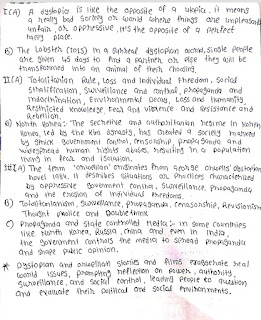 I (A) A dystopia is like the opposite of a utopia. it means
a really bad society or world where things are unpleasant
unfair, or oppressive. it's the opposite of a perfect
happy place.
B) The Lobster (2015) in a surreal dystopian world, single people
are given 45 days to find a partner or else they will be
transformed into an animal of their choosing.
II (A) Totalitarian Rule, Loss and Individual Freedom, Social
Stratification, Surveillance and control, propaganda and
Indoctrination, Environmental Decay, Loss and Humanity
Restricted Knowledge, Fear and Violence and Resistance and
Rebellion.
B) North Korea:- The secretive and authoritarian regime in North
Korea, led by the Kim dynasty, has created a society marked
by strict Government control, censorship, propaganda and
widespread human rights abuses, resulting in a population
living in fear and isolation.
III (A) The term 'orwellian' originates from george orwell's dystopian
novel 1984. it describes situations or practices characterized
by oppressive government control, surveillance, propaganda
and the erosion of individual freedoms.
B) Totalitarianism, Surveillance, propaganda, censorship, Revisionism
Thought police and Double think.
C) Propaganda and state controlled Media:- in some countries
like North Korea, Russia, china and even in India,
the government controls the media to spread propaganda
and shape public opinion.
* Dystopian and orwellian stories and films exaggerate real
world issues, prompting reflection on power, authority,
surveillance, and social control, leading people to question
and evaluate their political and social environments.